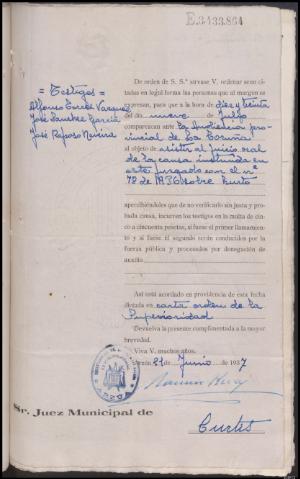 E.3433.864
De orden de S. Sª sírvase V. ordenar sean ci-
tadas en legal forma las personas que al margen se
expresan, para que a la hora de diez y treinta
del día nueve de Julio
comparezcan ante la Audiencia pro-
vincial de La Coruña
al objeto de asistir al juicio oral
de la causa instruida en
este juzgado con el nº
78 de 1936 sobre hurto
= Testigos =
Alfonso Vazquez
José Sanchez García
José Raposo
apercibiéndoles que de no verificarlo sin justa y pro-
bada causa, incurren los testigos en la multa de cin-
co a cincuenta pesetas, si fuese el primer llamamien-
to y si fuese el segundo serán conducidos por la
fuerza pública y procesados por denegación de
auxilio
Así está acordado en providencia de esta fecha
dictada en carta orden de la
Superioridad
Devuelva la presente cumplimentada a la mayor
brevedad.
Viva V. muchos años.
21 de Junio de 1937
Sr. Juez Municipal de
Curtis